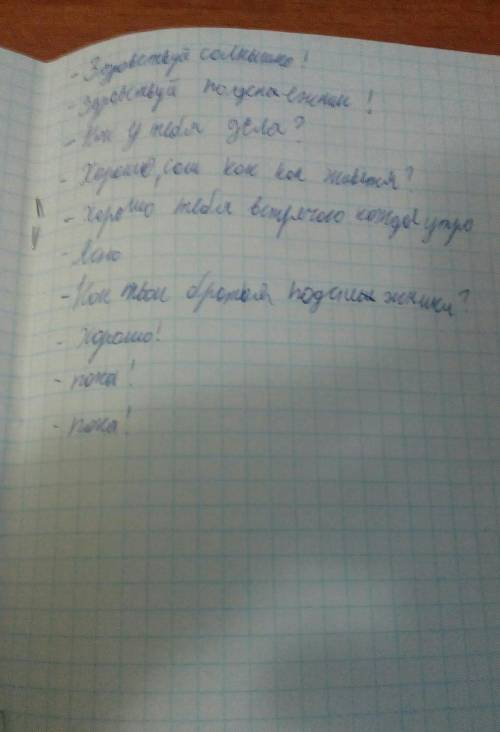 - Здравствуй солнышко!
- Здравствуй подснежник!
- Как у тебя дела?
- Хорошо, сам как живётся?
- Хорошо тебя встречаю каждое утро
- Ясно
- Как твои братья подснежники?
- Хорошо!
- пока!
- пока!